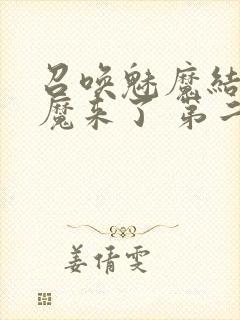 召唤魅魔结
魔来了 第二
姜倩雯